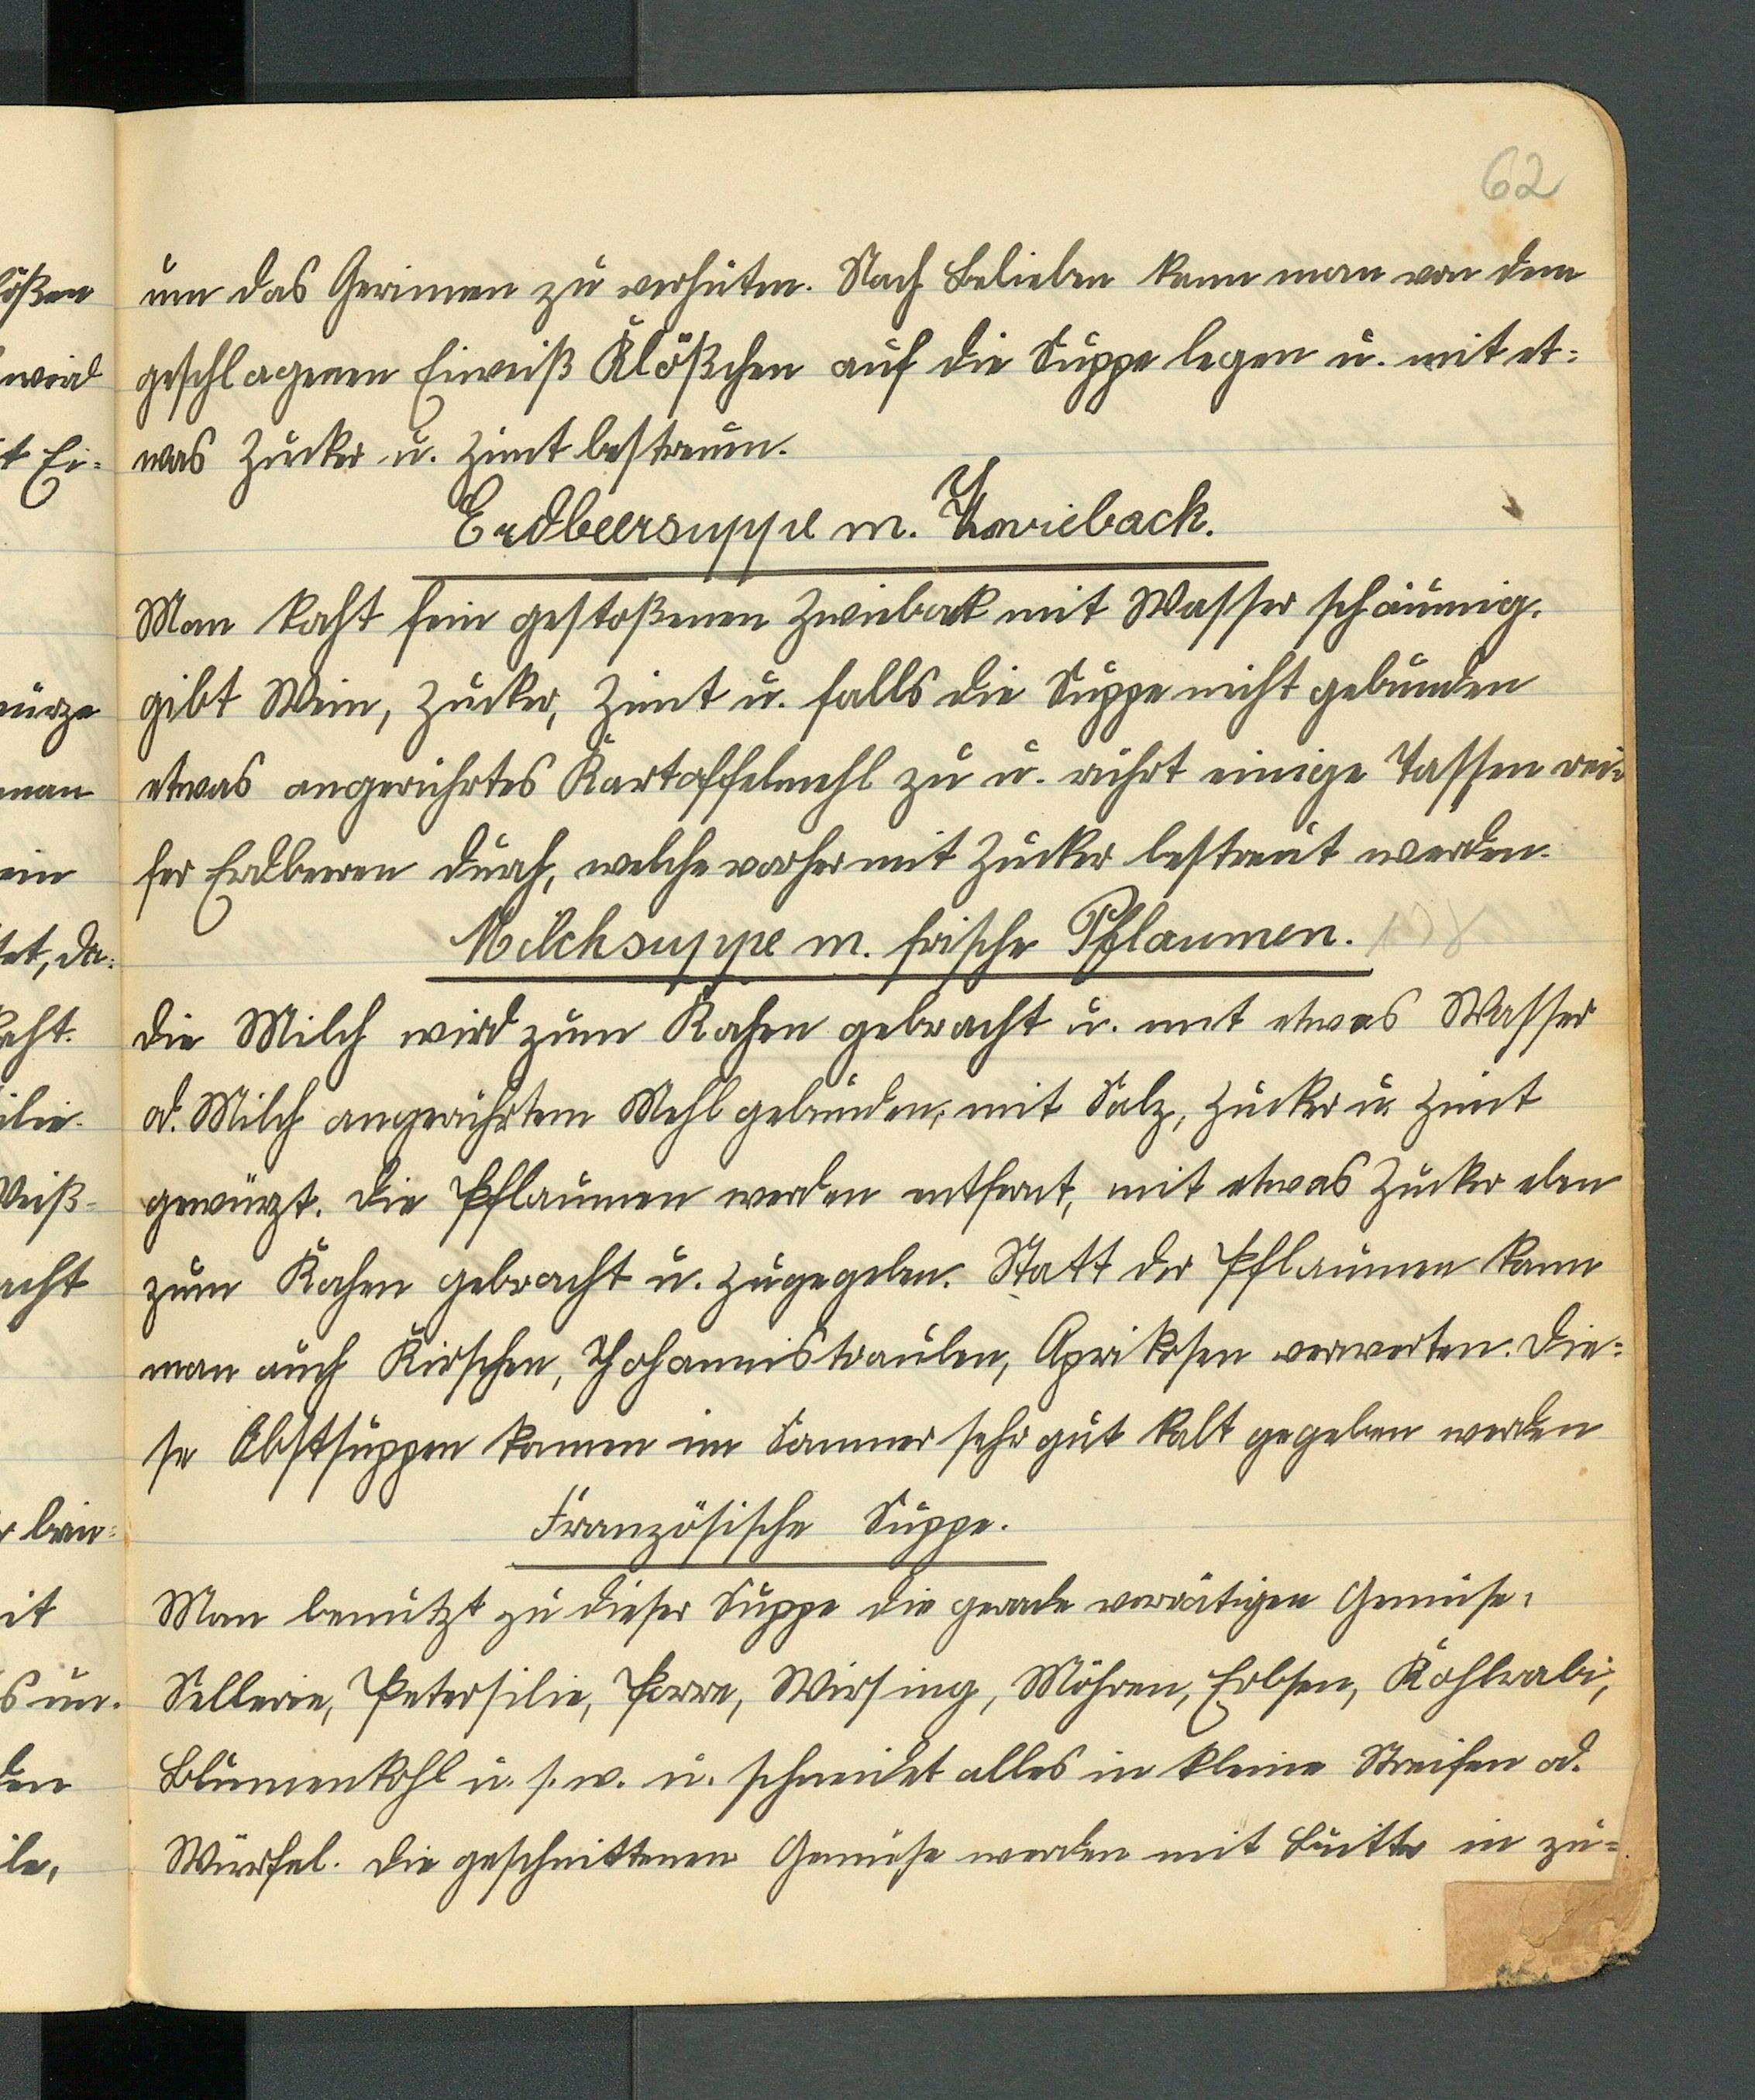 62
um das Gerinnen zu verhüten. Nach Belieben kann man von dem
geschlagenen Eiweiß Klößchen auf die Suppe legen u. mit et=
was Zucker u. Zimt bestreuen.
Erdbeersuppe m. Zwieback.
Man kocht fein gestoßenen Zwieback mit Wasser schäumig,
gibt Wein, Zucker, Zimt u. falls die Suppe nicht gebunden
etwas angerührtes Kartoffelmehl zu u. rührt einige Tassen rei=
fer Erdbeeren durch, welche vorher mit Zucker bestreut werden.
Milchsuppe m. frische Pflaumen. 108
Die Milch wird zum Kochen gebracht u. mit etwas Wasser
od. Milch angerührtem Mehl gebunden, mit Salz, Zucker u. Zimt
gewürzt. Die Pflaumen werden entfernt, mit etwas Zucker eben
zum Kochen gebracht u. zugegeben. Statt der Pflaumen kann
man auch Kirschen, Johannistrauben, Aprikosen verwerten. Die=
se Obstsuppen kannen im Sommer sehr gut kalt gegeben werden
Französische Suppe.
Man benutzt zu dieser Suppe die gerade vorrätigen Gemüse,
Sellerie, Petersilie, Porre, Wirsing, Möhren, Erbsen, Kohlrabi,
Blumenkohl u. s. w. u. schneidet alles in kleine Streifen od.
Würfel. Die geschnittenen Gemüse werden mit Butter in zu=